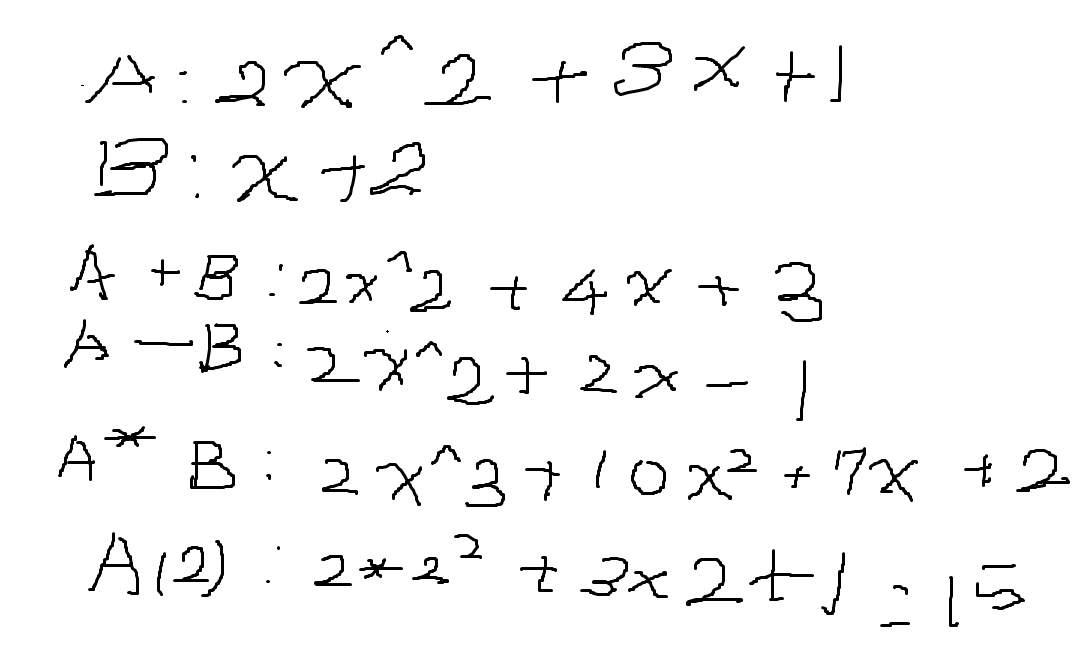 A: 2x^2 + 3x +1
B: x +2
A +B : 2x^2 + 4x + 3
A -B : 2x^2 + 2x - 1
A* B: 2x^3 + 10x² + 7x + 2
A(2) : 2*2² + 3x2+1 = 15